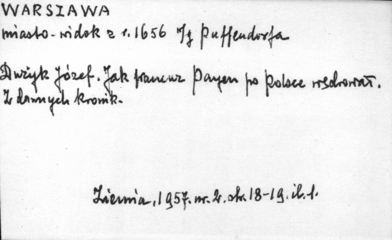 WARSZAWA
miasto-widok z r. 1656 /g Puffendorfa
Dużyk Józef. Jak francuz Payen po Polsce wędrował.
Z dawnych kronik.
Ziemia, 1957. nr. 2. str. 18-19. il. 1.